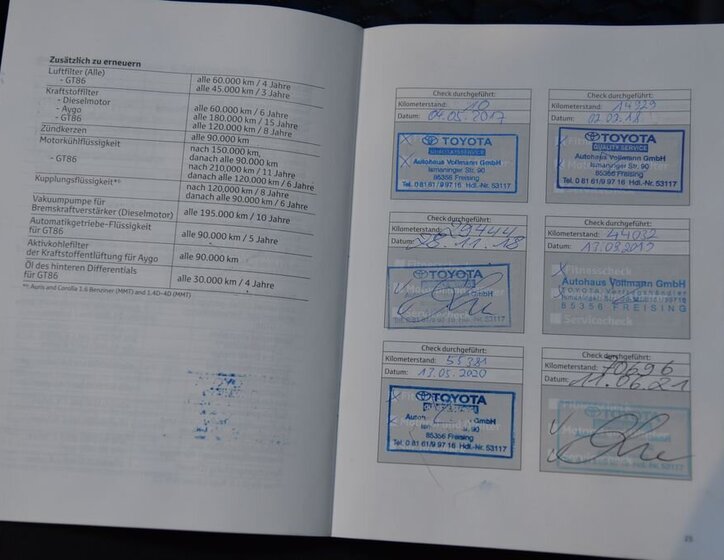 Zusätzlich zu erneuern
Luftfilter (Alle) alle 60.000 km / 4 Jahre
- GT86 alle 45.000 km / 3 Jahre
Kraftstoffilter
- Dieselmotor alle 60.000 km / 6 Jahre
- Aygo alle 180.000 km / 15 Jahre
- GT86 alle 120.000 km / 8 Jahre
Zündkerzen alle 90.000 km
Motorkühlflüssigkeit nach 150.000 km,
danach alle 90.000 km
- GT86 nach 210.000 km / 11 Jahre
danach alle 120.000 km / 6 Jahre
Kupplungsflüssigkeit*⁹ nach 120.000 km / 8 Jahre
danach alle 90.000 km / 6 Jahre
Vakuumpumpe für
Bremskraftverstärker (Dieselmotor) alle 195.000 km / 10 Jahre
Automatikgetriebe-Flüssigkeit
für GT86 alle 90.000 km / 5 Jahre
Aktivkohlefilter
der Kraftstoffentlüftung für Aygo alle 90.000 km
Öl des hinteren Differentials
für GT86 alle 30.000 km / 4 Jahre
*⁹: Auris and Corolla 1.6 Benziner (MMT) and 1.4D-4D (MMT)
Check durchgeführt:
Kilometerstand: 10
Datum: 04.05.2017
TOYOTA
QUALITY SERVICE
Autohaus Vollmann GmbH
Ismaninger Str. 90
85356 Freising
Tel. 0 81 61/9 97 16 Hdl.-Nr. 53117
Check durchgeführt:
Kilometerstand: 14929
Datum: 02.02.18
TOYOTA
QUALITY SERVICE
Autohaus Vollmann GmbH
Ismaninger Str. 90
85356 Freising
Tel. 0 81 61/9 97 16 Hdl.-Nr. 53117
Check durchgeführt:
Kilometerstand: 29444
Datum: 28.11.18
TOYOTA
53117
Check durchgeführt:
Kilometerstand: 44032
Datum: 13.08.2019
Fitnesscheck
Autohaus Vollmann GmbH
TOYOTA Vertragshändler
85356 FREISING
Servicecheck
Check durchgeführt:
Kilometerstand: 55381
Datum: 13.05.2020
TOYOTA
GmbH
Ismaninger Str. 90
85356 Freising
Tel. 0 81 61/9 97 16 Hdl.-Nr. 53117
Check durchgeführt:
Kilometerstand: 70696
Datum: 11.06.21
TOYOTA
25